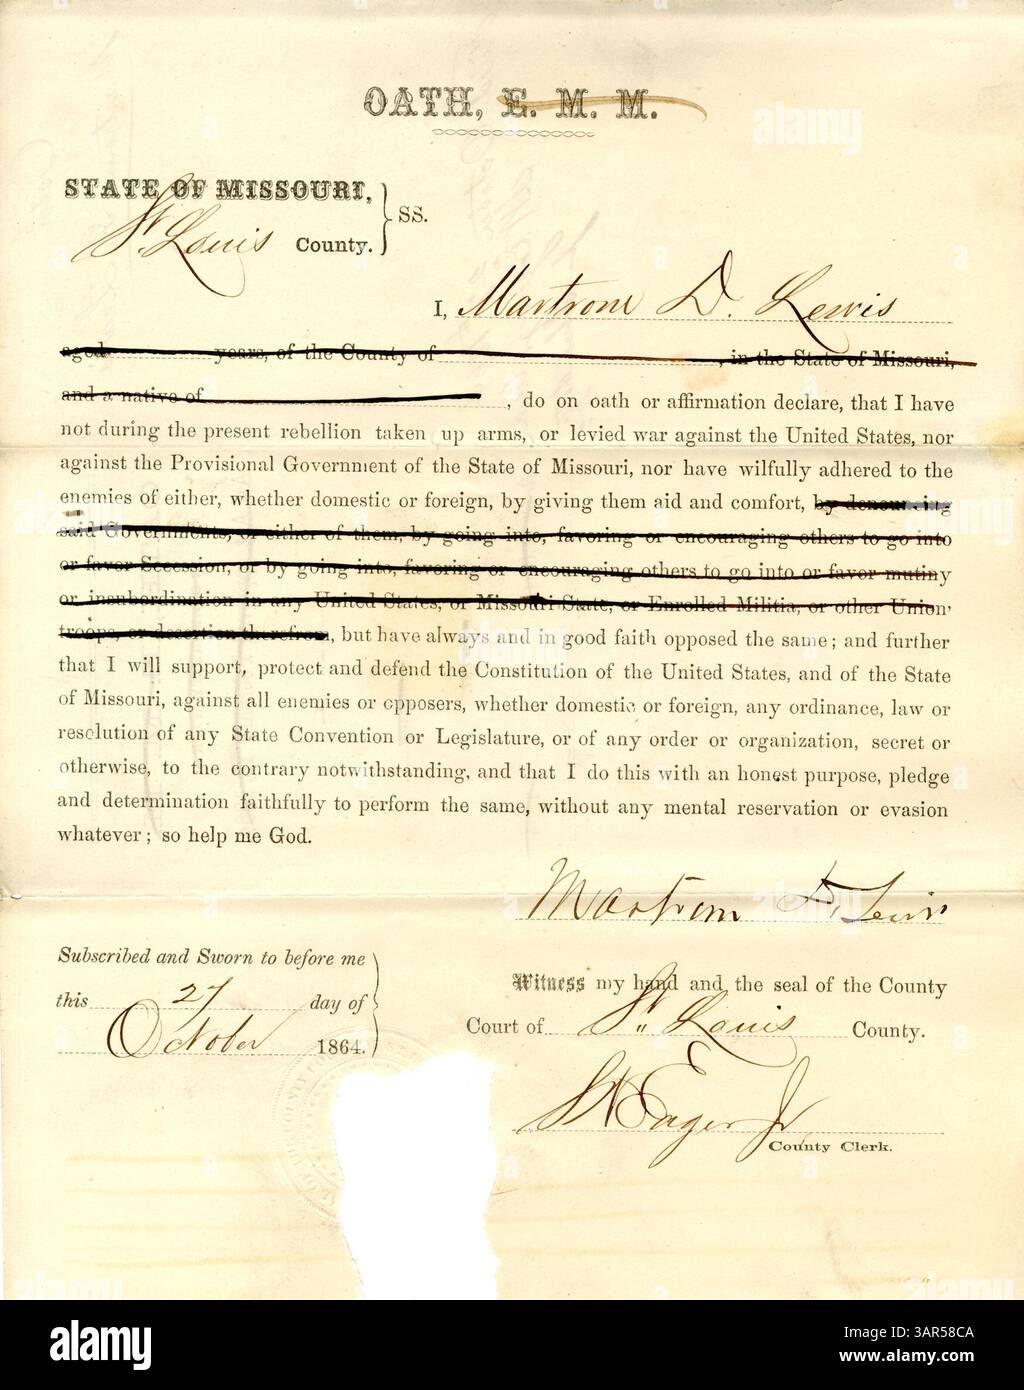 OATH, E. M. M.
STATE OF MISSOURI,
St. Louis County. } SS.
I, Martrom D. Lewis
aged years, of the County of , in the State of Missouri,
and a native of , do on oath or affirmation declare, that I have
not during the present rebellion taken up arms, or levied war against the United States, nor
against the Provisional Government of the State of Missouri, nor have wilfully adhered to the
enemies of either, whether domestic or foreign, by giving them aid and comfort, by denouncing
said Governments, or either of them, by going into, favoring or encouraging others to go into
or favor Secession, or by going into, favoring or encouraging others to go into or favor mutiny
or insubordination in any United States, or Missouri State, or Enrolled Militia, or other Union
troops, or desertion therefrom, but have always and in good faith opposed the same; and further
that I will support, protect and defend the Constitution of the United States, and of the State
of Missouri, against all enemies or opposers, whether domestic or foreign, any ordinance, law or
resolution of any State Convention or Legislature, or of any order or organization, secret or
otherwise, to the contrary notwithstanding, and that I do this with an honest purpose, pledge
and determination faithfully to perform the same, without any mental reservation or evasion
whatever; so help me God.
Martrom D. Lewis
Subscribed and Sworn to before me
this 27 day of
October 1864.
Witness my hand and the seal of the County
Court of St. Louis County.
Eager Jr
County Clerk.
alamy
Image ID: 3AR58CA
www.alamy.com